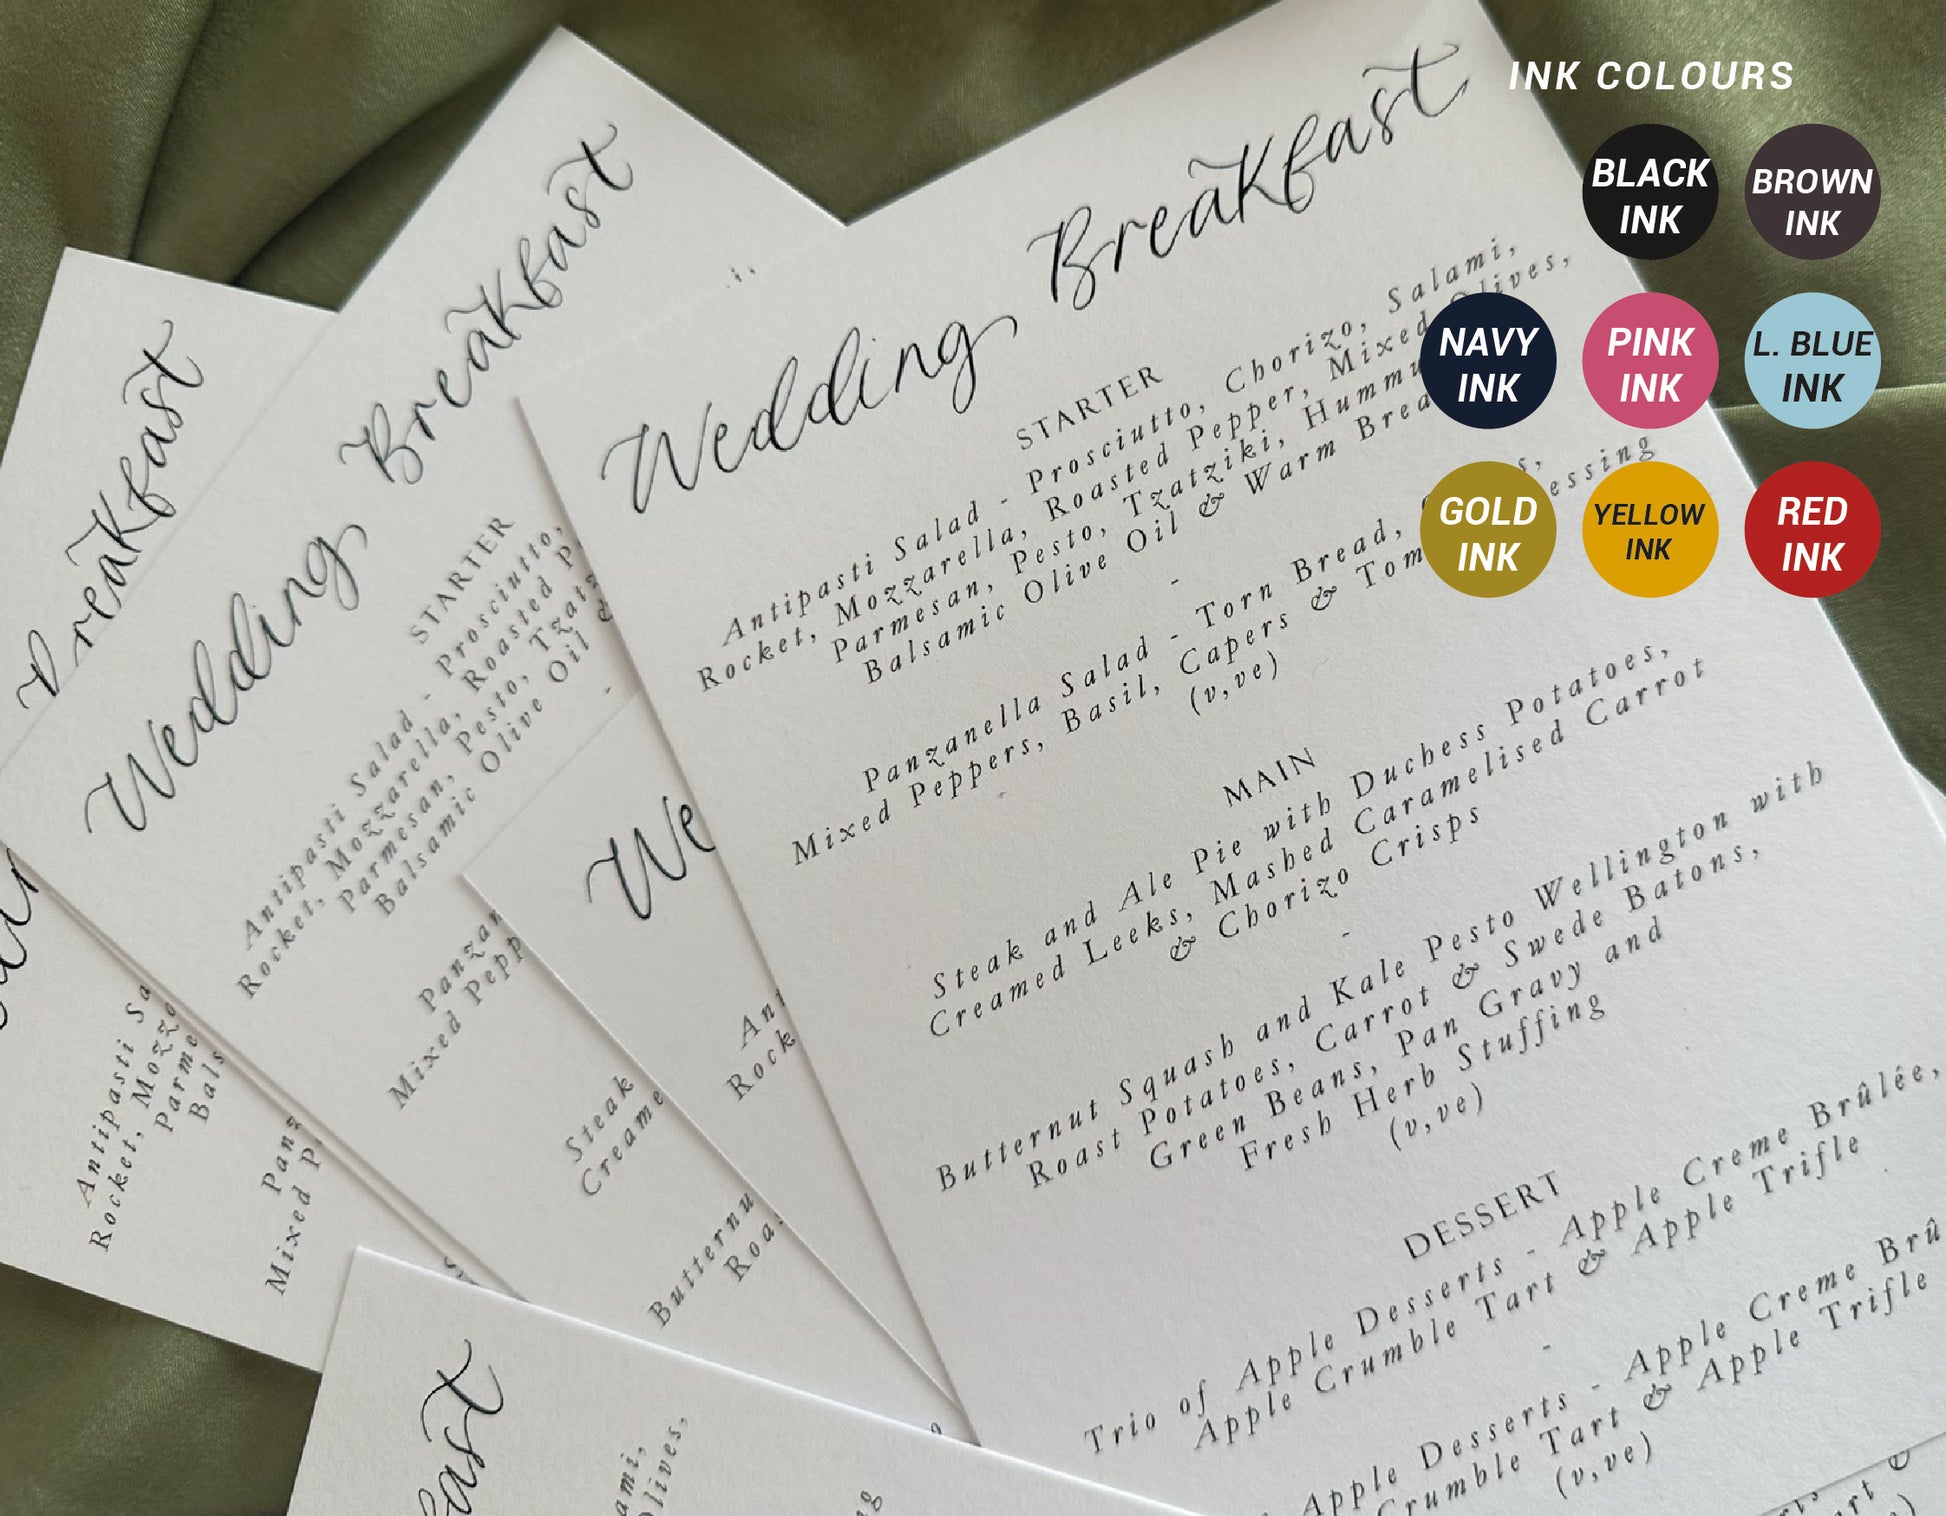 INK COLOURS
BLACK INK
BROWN INK
NAVY INK
PINK INK
L. BLUE INK
GOLD INK
YELLOW INK
RED INK
Wedding Breakfast
STARTER
Antipasti Salad - Prosciutto, Chorizo, Salami,
Rocket, Mozzarella, Roasted Pepper, Mixed Olives,
Parmesan, Pesto, Tzatziki,
Balsamic Olive Oil & Warm
-
Panzanella Salad - Torn Bread,
Mixed Peppers, Basil, Capers &
(v,ve)
MAIN
Steak and Ale Pie with Duchess Potatoes,
Creamed Leeks, Mashed Caramelised Carrot
& Chorizo Crisps
-
Butternut Squash and Kale Pesto Wellington with
Roast Potatoes, Carrot & Swede Batons,
Green Beans, Pan Gravy and
Fresh Herb Stuffing
(v,ve)
DESSERT
Trio of Apple Desserts - Apple Creme Brûlée,
Apple Crumble Tart & Apple Trifle
-
Apple Desserts - Apple Creme
Crumble Tart & Apple Trifle
(v,ve)
Wedding Breakfast
STARTER
Antipasti Salad - Prosciutto,
Rocket, Mozzarella, Roasted
Parmesan, Pesto,
Balsamic Olive Oil
-
Mixed
Steak
Breakfast
Antipasti
Rocket,
Mixed